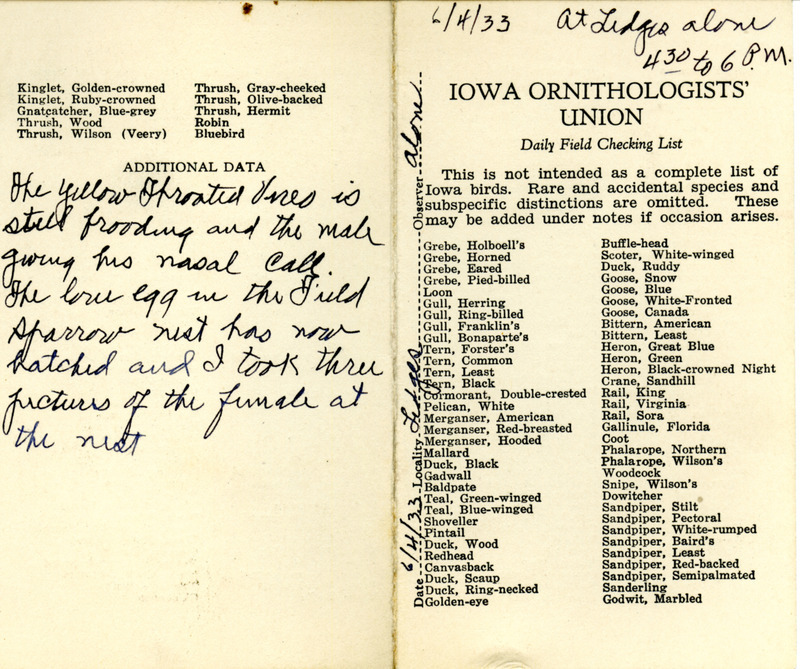 Kinglet, Golden-crowned
Kinglet, Ruby-crowned
Gnatcatcher, Blue-grey
Thrush, Wood
Thrush, Wilson (Veery)
Thrush, Gray-cheeked
Thrush, Olive-backed
Thrush, Hermit
Robin
Bluebird
ADDITIONAL DATA
The Yellow Throated Vireo is
still brooding and the male
giving his nasal call.
The lone egg in the Field
Sparrow nest has now
hatched and I took three
pictures of the female at
the nest
6/4/33 At Ledges alone
4 30 to 6 P.M.
IOWA ORNITHOLOGISTS'
UNION
Daily Field Checking List
This is not intended as a complete list of
Iowa birds. Rare and accidental species and
subspecific distinctions are omitted. These
may be added under notes if occasion arises.
Date 6/4/33 Locality Ledges Observer alone
Grebe, Holboell's
Grebe, Horned
Grebe, Eared
Grebe, Pied-billed
Loon
Gull, Herring
Gull, Ring-billed
Gull, Franklin's
Gull, Bonaparte's
Tern, Forster's
Tern, Common
Tern, Least
Tern, Black
Cormorant, Double-crested
Pelican, White
Merganser, American
Merganser, Red-breasted
Merganser, Hooded
Mallard
Duck, Black
Gadwall
Baldpate
Teal, Green-winged
Teal, Blue-winged
Shoveller
Pintail
Duck, Wood
Redhead
Canvasback
Duck, Scaup
Duck, Ring-necked
Golden-eye
Buffle-head
Scoter, White-winged
Duck, Ruddy
Goose, Snow
Goose, Blue
Goose, White-Fronted
Goose, Canada
Bittern, American
Bittern, Least
Heron, Great Blue
Heron, Green
Heron, Black-crowned Night
Crane, Sandhill
Rail, King
Rail, Virginia
Rail, Sora
Gallinule, Florida
Coot
Phalarope, Northern
Phalarope, Wilson's
Woodcock
Snipe, Wilson's
Dowitcher
Sandpiper, Stilt
Sandpiper, Pectoral
Sandpiper, White-rumped
Sandpiper, Baird's
Sandpiper, Least
Sandpiper, Red-backed
Sandpiper, Semipalmated
Sanderling
Godwit, Marbled